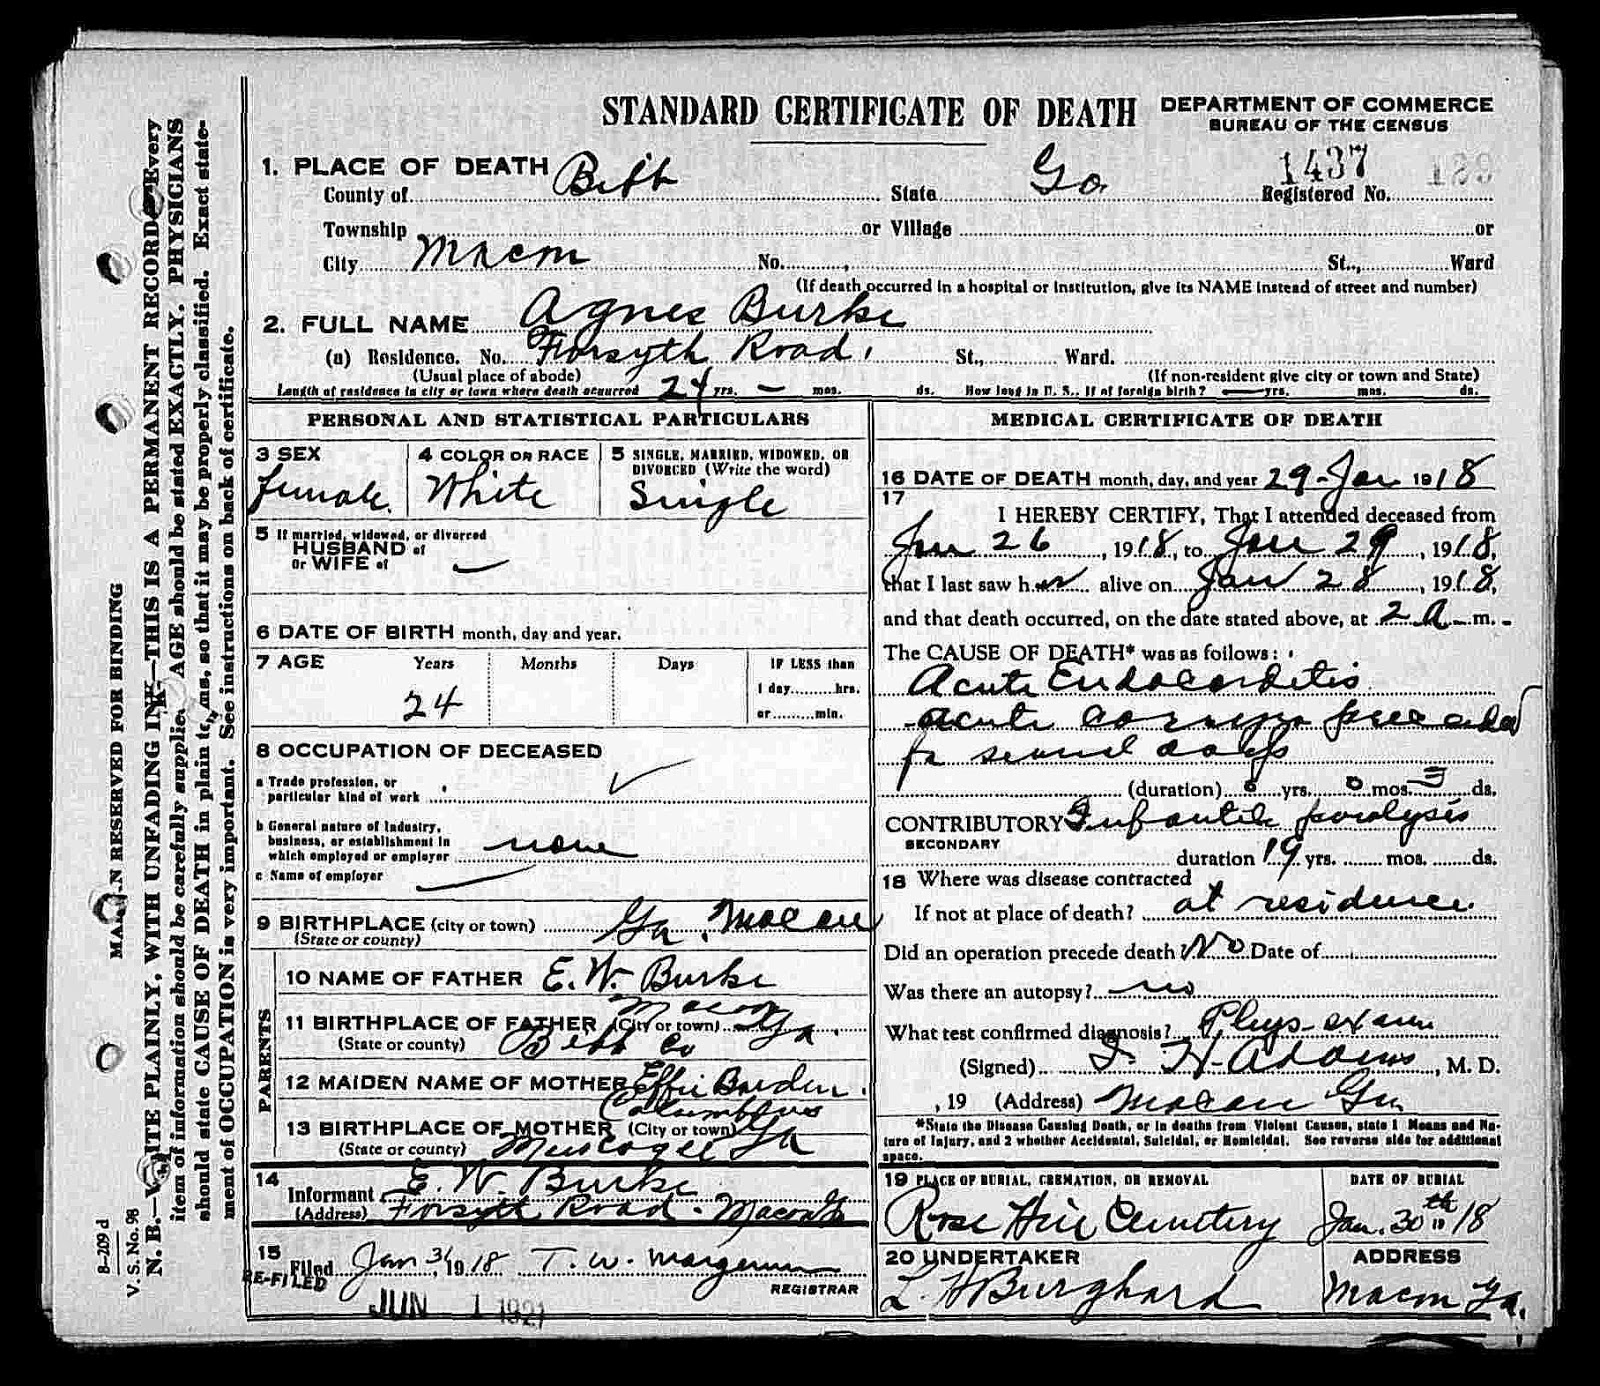 STANDARD CERTIFICATE OF DEATH
DEPARTMENT OF COMMERCE
BUREAU OF THE CENSUS
1. PLACE OF DEATH
County of Bibb State Ga Registered No. 1437 189
Township or Village or
City Macon No. , St., Ward
(If death occurred in a hospital or institution, give its NAME instead of street and number)
2. FULL NAME Agnes Burke
(a) Residence. No. Forsyth Road, St., Ward.
(Usual place of abode) (If non-resident give city or town and State)
Length of residence in city or town where death occurred 24 yrs. — mos. ds. How long in U. S., if of foreign birth? — yrs. mos. ds.
PERSONAL AND STATISTICAL PARTICULARS
3 SEX
female.
4 COLOR OR RACE
White
5 SINGLE, MARRIED, WIDOWED, OR
DIVORCED (Write the word)
Single
5 If married, widowed, or divorced
HUSBAND of
or WIFE of
6 DATE OF BIRTH month, day and year.
7 AGE Years Months Days IF LESS than
24 1 day........hrs.
or.........min.
8 OCCUPATION OF DECEASED
a Trade profession, or
particular kind of work
b General nature of Industry,
business, or establishment in
which employed or employer none
c Name of employer
9 BIRTHPLACE (city or town) Ga. Macon
(State or county)
PARENTS
10 NAME OF FATHER E. W. Burke
11 BIRTHPLACE OF FATHER (City or town) Macon Ga.
(State or county) Bibb Co
12 MAIDEN NAME OF MOTHER Effie Borden.
13 BIRTHPLACE OF MOTHER (City or town) Columbus Ga
(State or county) Muscogee
14
Informant E. W. Burke
(Address) Forsyth Road - Macon Ga
15
Filed Jan 31, 1918 T. W.
REGISTRAR
RE-FILED
JUN 1 1921
MEDICAL CERTIFICATE OF DEATH
16 DATE OF DEATH month, day, and year 29-Jan 1918
17
I HEREBY CERTIFY, That I attended deceased from
Jan 26, 1918, to Jan 29, 1918,
that I last saw her alive on Jan 28, 1918,
and that death occurred, on the date stated above, at 2 A. m.
The CAUSE OF DEATH* was as follows:
Acute Endocarditis
acute coryza preceded
for several days
(duration) 0 yrs. 0 mos. 3 ds.
CONTRIBUTORY Infantile paralysis
SECONDARY
duration 19 yrs. mos. ds.
18 Where was disease contracted
If not at place of death? at residence
Did an operation precede death No Date of
Was there an autopsy? no
What test confirmed diagnosis? Phys-exam
(Signed) I. H. Adams, M. D.
, 19 (Address) Macon Ga
*State the Disease Causing Death, or in deaths from Violent Causes, state 1 Means and Na-
ture of Injury, and 2 whether Accidental, Suicidal, or Homicidal. See reverse side for additional
space.
19 PLACE OF BURIAL, CREMATION, OR REMOVAL
Rose Hill Cemetery
DATE OF BURIAL
Jan. 30th 1918
20 UNDERTAKER
L H Burghard
ADDRESS
Macon Ga.
8-209 d
V. S. No. 98
MARGIN RESERVED FOR BINDING
N. B.—WRITE PLAINLY, WITH UNFADING INK—THIS IS A PERMANENT RECORD. Every
item of information should be carefully supplied. AGE should be stated EXACTLY. PHYSICIANS
should state CAUSE OF DEATH in plain terms, so that it may be properly classified. Exact state-
ment of OCCUPATION is very important. See instructions on back of certificate.